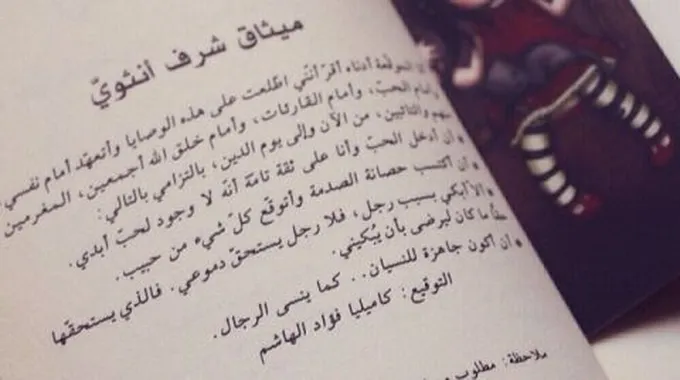 ميثاق شرف أنثويّ
الموقّعة أدناه أقرّ أنّني اطّلعت على هذه الوصايا وأتعهّد أمام نفسي،
وأمام الحبّ، وأمام القارئات، وأمام خلق الله أجمعين، المغرمين
منهم والتائبين، من الآن وإلى يوم الدين، بالتزامي بالتالي:
• أن أدخل الحبّ وأنا على ثقة تامّة أنّه لا وجود لحبّ أبدي.
• أن أكتسب حصانة الصدمة وأتوقّع كلّ شيء من حبيب.
• ألّا أبكي بسبب رجل، فلا رجل يستحقّ دموعي. فالذي يستحقّها
حقاً ما كان ليرضى بأن يُبكيني.
• أن أكون جاهزة للنسيان.. كما ينسى الرجال.
التوقيع: كاميليا فؤاد الهاشم
ملاحظة: مطلوب